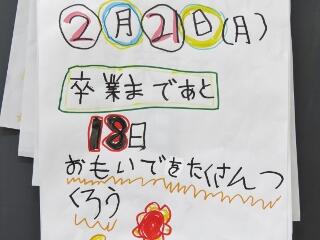 2月21日(月)
卒業まであと
18日
おもいでをたくさんつ
くろう